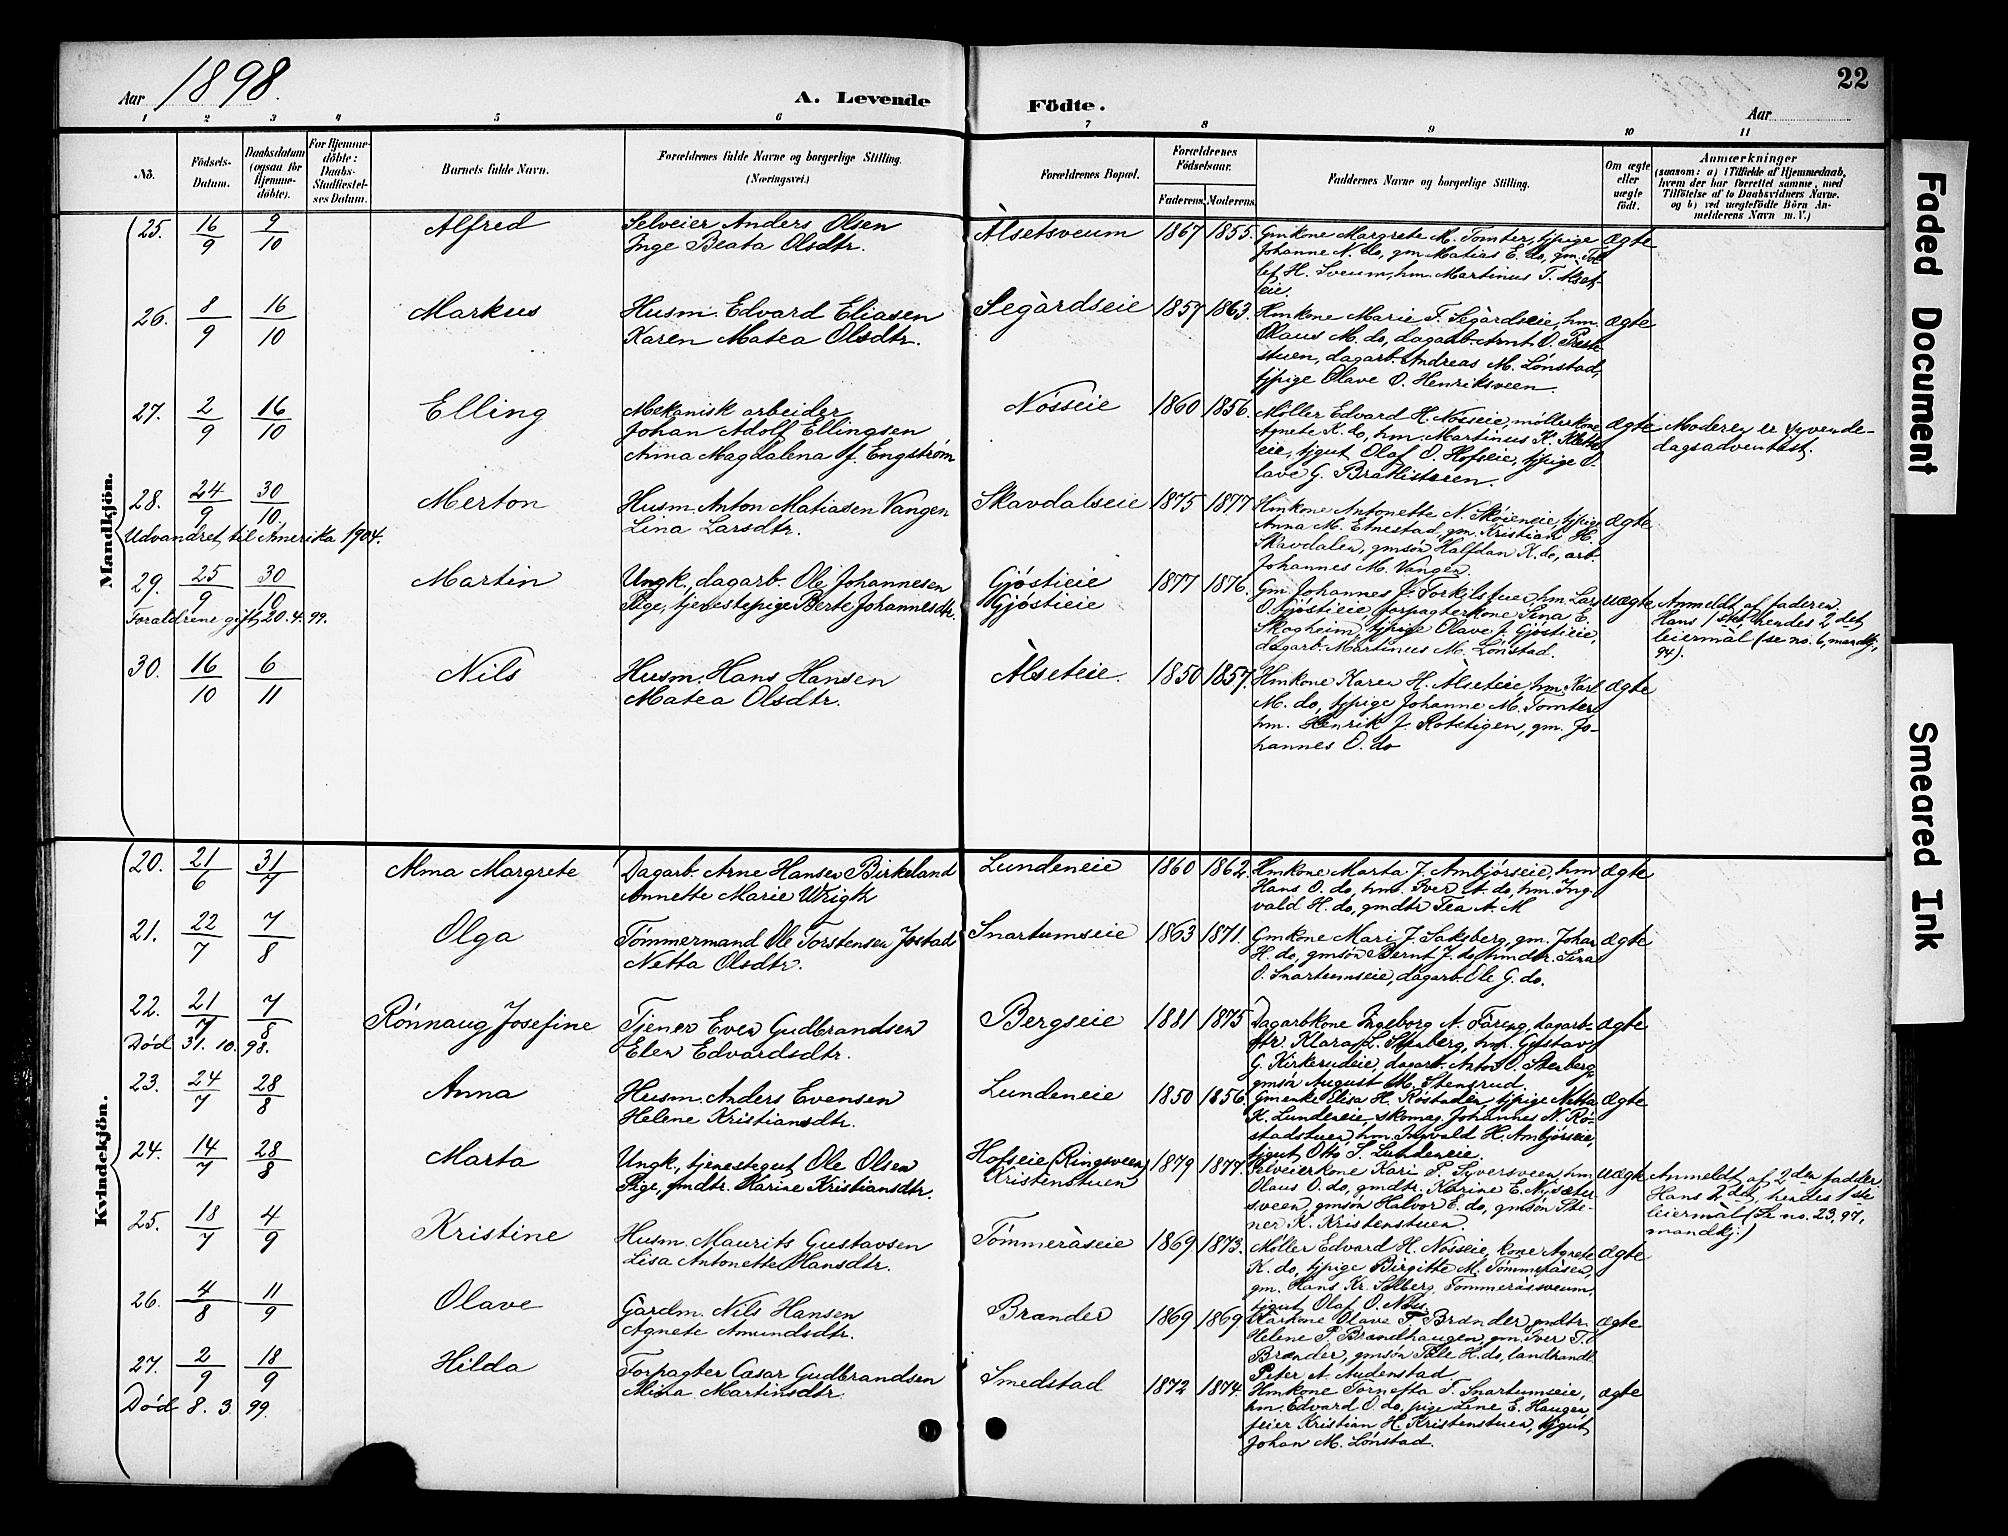 1898.
Aar
A. Levende
Födte.
Aar
22
1 2 3 4 5 6 7 8 9 10 11
No.
Födsels-Datum.
Daabsdatum (ogsaa for Hjemme-döbte).
For Hjemme-döbte: Daabs-Stadfæstel-ses Datum.
Barnets fulde Navn.
Forældrenes fulde Navne og borgerlige Stilling. (Næringsvei.)
Forældrenes Bopæl.
Forældrenes Födselsaar.
Faderens. Moderens.
Faddernes Navne og borgerlige Stilling.
Om ægte eller uægte födt.
Anmærkninger
(saasom: a) i Tilfælde af Hjemmedaab, hvem der har forrettet samme, med Tilföielse af to Daabsvidners Navne. og b) ved uægtefödte Börn An-melderens Navn m. V.)
Mandkjön.
25. 16/9 9/10 Alfred
Selveier Anders Olsen
Inge Beata Olsdtr.
Alsetsveum 1867 1855.
Gmkone Margrete M. Tomter, tjpige
Johanne N. do, gm. Matias E. do, gm. Tol-
lef H. Sveum, hm. Martinus T. Alset-
eie.
ægte
26. 8/9 16/10 Markus
Husm. Edvard Eliasen
Karen Matea Olsdtr.
Segårdseie 1857 1863.
Hmkone Marie F. Segårdseie, hm.
Olaus M. do, dagarb. Arnt O. Præste-
stuen, dagarb. Andreas M. Lønstad,
tjpige Olave O. Henriksveen.
ægte
27. 2/9 16/10 Elling
Mekanisk arbeider
Johan Adolf Ellingsen
Anna Magdalena f. Engstrøm
Nøsseie 1860 1856.
Møller Edvard H. Nøsseie, møllerkone
Agnete K. do, hm. Martinus K. Kletts-
eie, tjgut Olaf O. Hofseie, tjpige O-
lave G. Bratlistuen.
ægte
Moderen er syvende-
dagsadventist.
28. 24/9 30/10. Merton
Husm. Anton Matiasen Vangen
Lina Larsdtr.
Skavdalseie 1875 1877
Hmkone Antonette N. Skøieneie, tjpige
Anna M. Etnestad, gm. Kristian H.
Skavdalen, gmsøn Halfdan K. do, arb.
Johannes M. Vangen.
ægte
Udvandret til Amerika 1904.
29. 25/9 30/10 Martin
Ungk., dagarb. Ole Johannesen
Pige, tjenestepige Berte Johannesdtr.
Gjøstieie
Gjøstieie
1877 1876.
Gm. Johannes J. Torkilstuen, hm. Lars
O. Gjøstieie, forpagterkone Sina E.
Skogheim, tjpige Olave J. Gjøstieie,
dagarb. Martinus M. Lønstad.
uægte
Anmeldt af faderen.
Hans 1ste, hendes 2det
leiermål (se no. 6, mandkj.,
94).
Forældrene gift 20.4.99.
30. 16/10 6/11 Nils
Husm. Hans Hansen
Matea Olsdtr.
Alseteie. 1850 1857.
Hmkone Karen H. Alseteie, hm. Karl
M. do, tjpige Johanne M. Tomter
hm. Henrik J. Rotstigen, gm. Jo-
hannes O. do
ægte
Kvindekjön.
20. 21/6 31/7 Alma Margrete
Dagarb. Arne Hansen Birkeland
Annette Marie Wrigth
Lundeneie 1860 1862.
Hmkone Marta J. Ambjørseie, hm
Hans O. do, hm. Iver A. do, hm. Ing-
vald H. do, gmdtr Tea A. M
ægte
21. 22/7 7/8 Olga
Tømmermand Ole Torstensen Jostad
Netta Olsdtr.
Snartumseie 1863 1871.
Gmkone Mari J. Saksberg, gm. Johan
H. do, gmsøn Bernt J. do, hmdtr. Sina
O. Snartumseie, dagarb. Ole G. do.
ægte
22. 21/7 7/8 Rønnaug Josefine
Tjener Even Gudbrandsen
Elen Edvardsdtr.
Bergseie 1881 1875
Dagarbkone Ingeborg A. Fareng, dagarb-
dtr. Klara L. Stenberg, hm. Gustav
G. Kirkerudeie, dagarb. Anton O. Stenberg,
gmsøn August M. Stensrud
ægte
Død 31. 10. 98.
23. 24/7 28/8 Anna
Husm. Anders Evensen
Helene Kristiansdtr.
Lundeneie 1850 1856.
Gmenke Elisa H. Røstaden, tjpige Netta
K. Lundeneie, skomag. Johannes N. Rø-
stadstuen, hm Ingvald H. Ambjørseie,
tjgut Otto S. Lundeneie.
ægte
24. 14/7 28/8 Marta
Ungk., tjenestegut Ole Olsen
Pige, gmdtr. Karine Kristiansdtr.
Hofseie (Ringsveen)
Kristenstuen
1879 1877.
Selveierkone Kari P. Syversveen, hm
Olaus O. do, gmdtr. Karine E. Nysæter-
sveen, gmsøn Halvor E. do, gmsøn Ste-
ner K. Kristenstuen.
uægte
Anmeldt af 2den fadder.
Hans 2det, hendes 1ste
leiermål (Se no. 23, 97,
mandkj.)
25. 18/7 4/9 Kristine
Husm. Maurits Gustavsen
Lisa Antonette Hansdtr.
Tømmeråseie 1869 1873.
Møller Edvard H. Nøsseie, kone Agnete
K. do, tjpige Birgitte M. Tømmeråsen,
gm. Hans Kr. Solberg, Tommeråssveum,
tjgut Olaf O. Nøss.
ægte
26. 4/8 11/9 Olave
Gårdm. Nils Hansen
Agnete Amundsdtr.
Brænder 1869 1869
Kårkone Olave T. Brænder, gmdtr.
Helene P. Brændhaugen, gm. Iver T.
Brænder, gmsøn Pele H. do, landhandl.
Peter A. Audenstad
ægte
27. 2/9 18/9 Hilda
Forpagter Cæsar Gudbrandsen
Mina Martinsdtr.
Smedstad 1872 1874.
Hmkone Tornefta T. Snartumseie,
hm. Edvard O. do, pige Lene E. Haugen,
feier Kristian H. Kristenstuen, tjgut
Johan M. Lønstad.
ægte
Død 8. 3. 99.
Faded Document
Smeared Ink